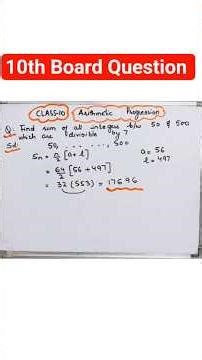 10th Board Question
CLASS-10 Arithmetic Progression
Q. Find sum of all integers b/w 50 & 500
which are divisible by 7
Sol: 50, ........, 500
Sn = n/2 [a+l] a = 56
= 64/2 [56+497] l = 497
= 32 (553) = 17696